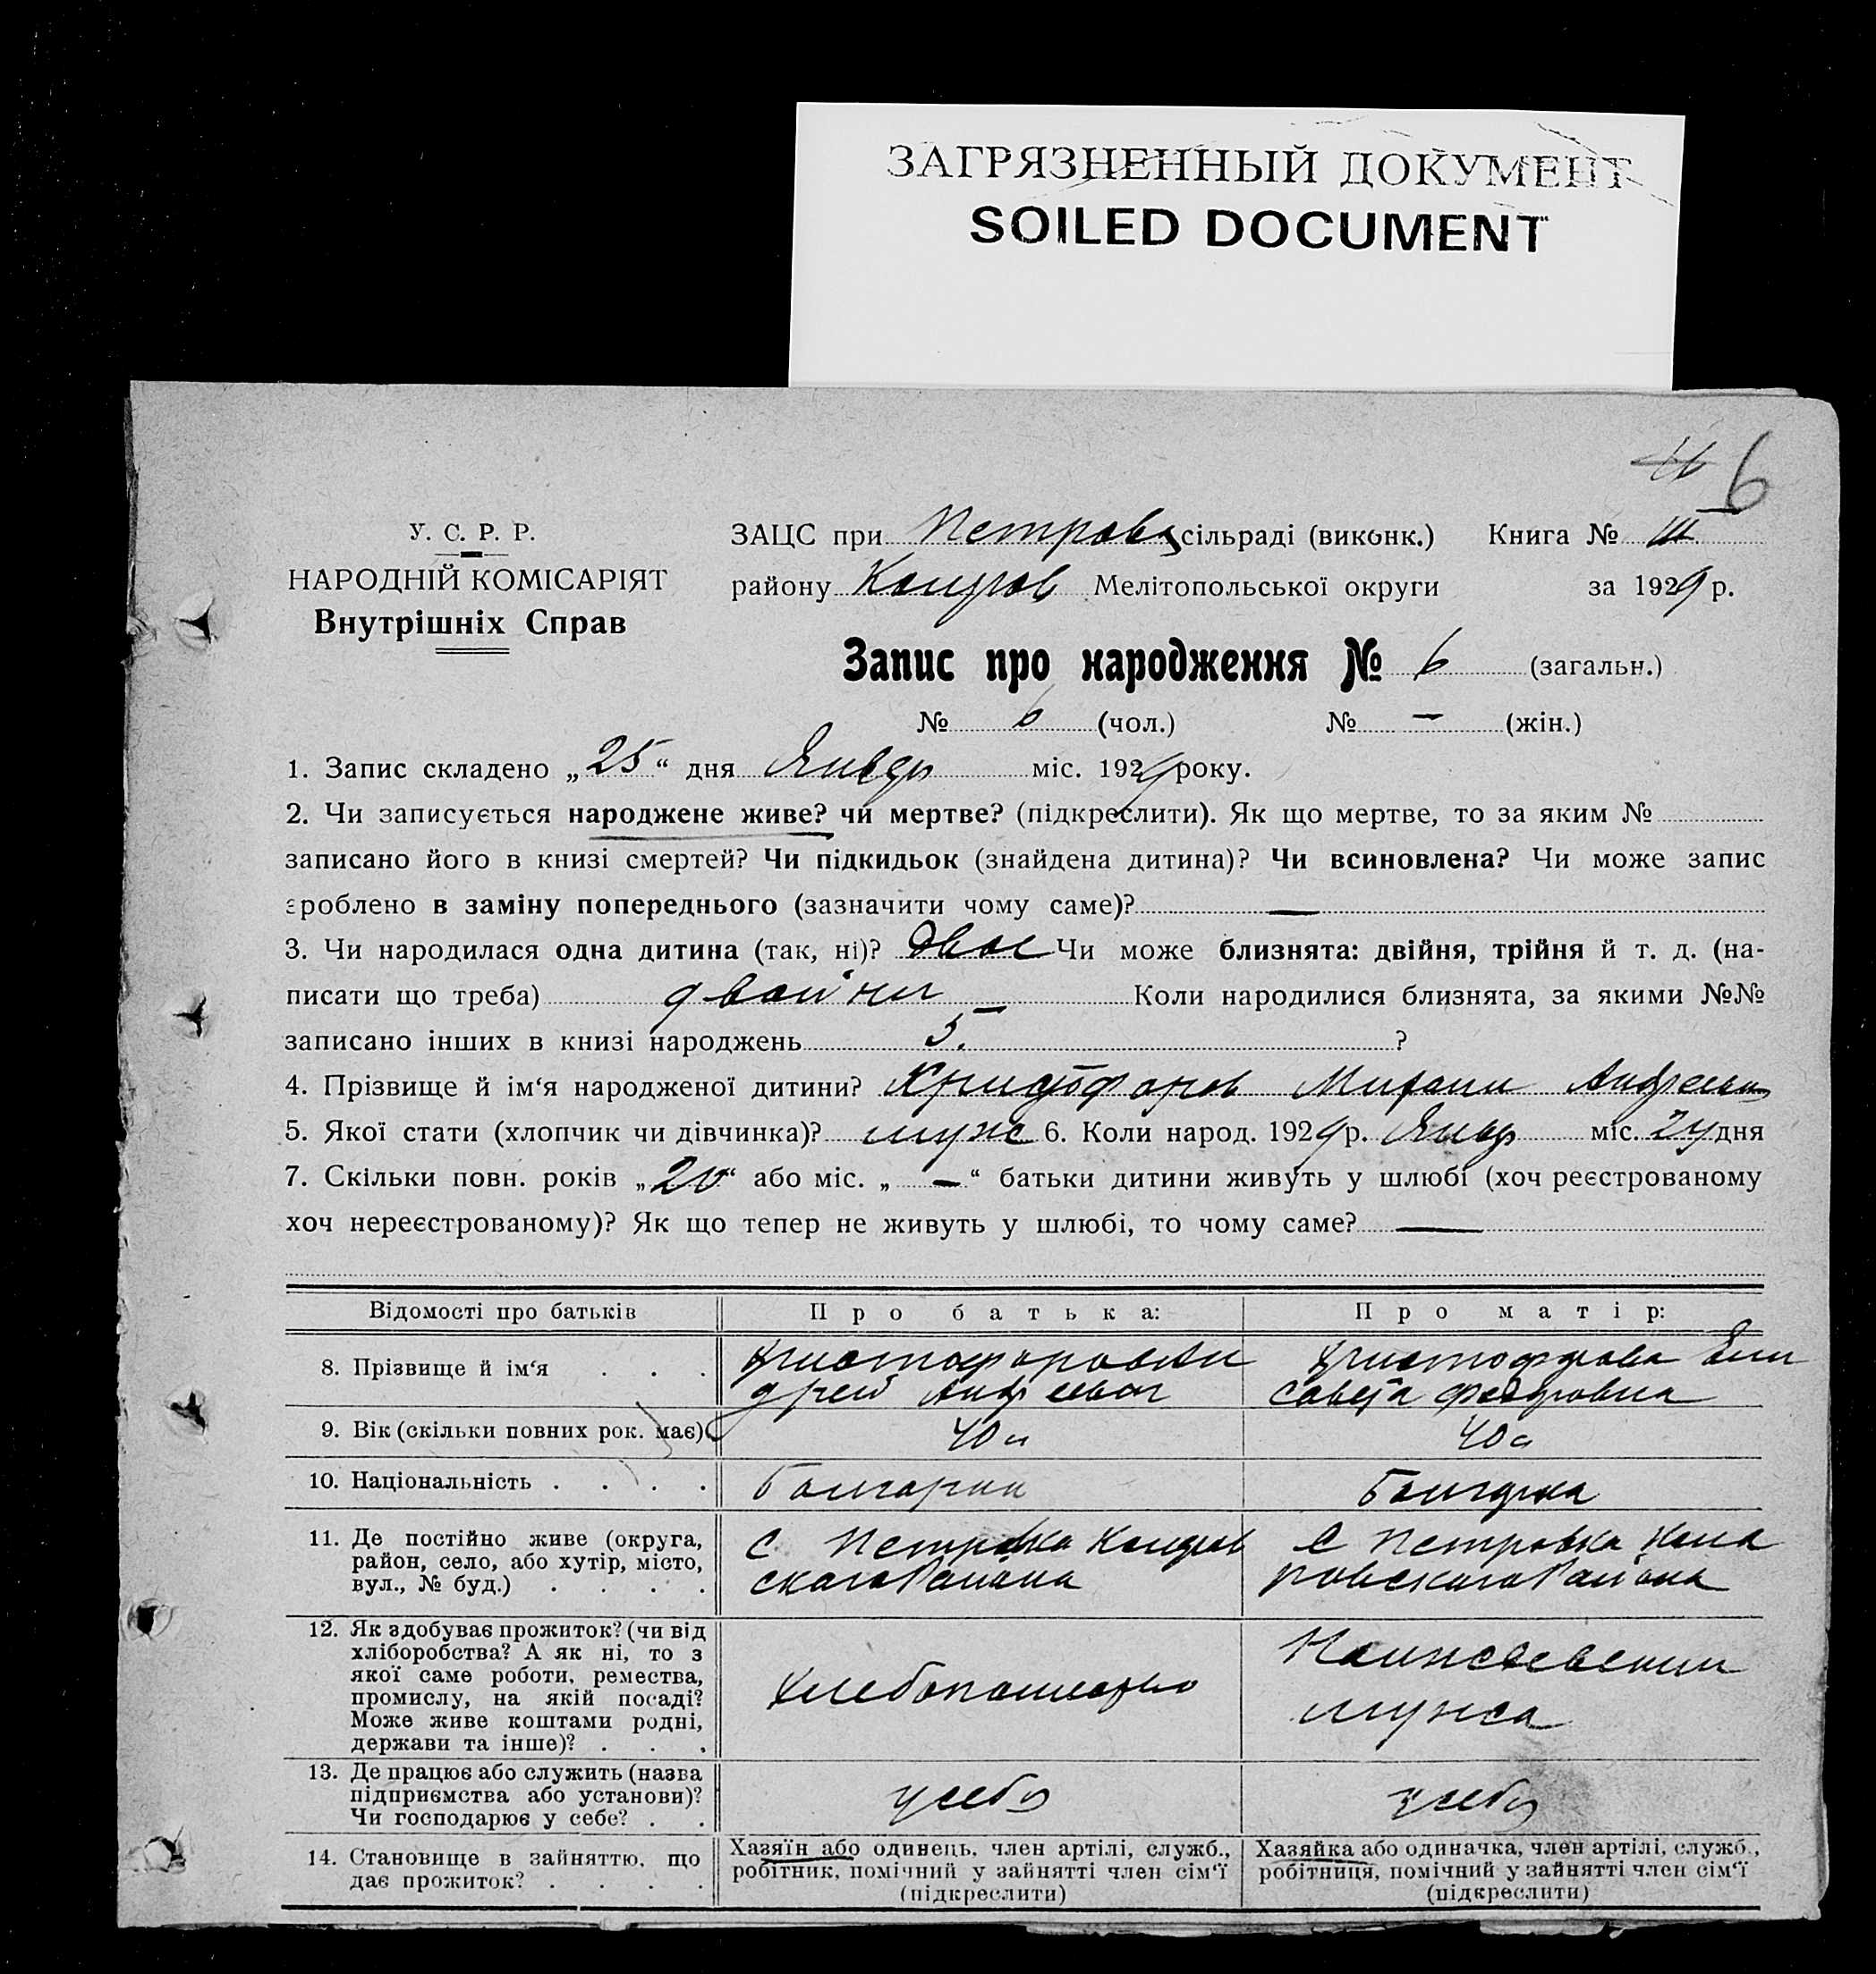 ЗАГРЯЗНЕННЫЙ ДОКУМЕНТ
SOILED DOCUMENT
6
У. С. Р. Р.
НАРОДНІЙ КОМІСАРІЯТ
Внутрішніх Справ
ЗАЦС при Петровс сільраді (виконк.) Книга № III
району Мелітопольської округи за 1929 р.
Запис про народження № 6 (загальн.)
№ 6 (чол.) № — (жін.)
1. Запис складено „25“ дня Январ міс. 1929 року.
2. Чи записується народжене живе? чи мертве? (підкреслити). Як що мертве, то за яким №
записано його в книзі смертей? Чи підкидьок (знайдена дитина)? Чи всиновлена? Чи може запис
зроблено в заміну попереднього (зазначити чому саме)? —
3. Чи народилася одна дитина (так, ні)? двое Чи може близнята: двійня, трійня й т. д. (на-
писати що треба) двойни Коли народилися близнята, за якими №№
записано інших в книзі народжень 5. ?
4. Прізвище й ім‘я народженої дитини? Христофоров Михаил Андреевич
5. Якої стати (хлопчик чи дівчинка)? муж 6. Коли народ. 1929 р. Январ міс. 24 дня
7. Скільки повн. років „20“ або міс. „—“ батьки дитини живуть у шлюбі (хоч реєстрованому
хоч нереєстрованому)? Як що тепер не живуть у шлюбі, то чому саме? —
Відомості про батьків
Про батька:
Про матір:
8. Прізвище й ім‘я . . .
Христофоров Ан
дрей Андреевич
Христофорова Ели
савета Федоровна
9. Вік (скільки повних рок. має)
40 л
40 л
10. Національність . . . .
Болгарин
Болгарка
11. Де постійно живе (округа,
район, село, або хутір, місто,
вул., № буд.) . . . .
С Петровка
скаго Района
С Петровка
ровскаго Района
12. Як здобуває прожиток? (чи від
хліборобства? А як ні, то з
якої саме роботи, ремества,
промислу, на якій посаді?
Може живе коштами родні,
держави та інше)? . . .
Хлебопашество
На иждевении
мужа
13. Де працює або служить (назва
підприємства або установи)?
Чи господарює у себе? . .
у себя
у себя
14. Становище в зайняттю, що
дає прожиток? . . . .
Хазяїн або одинець, член артілі, служб.,
робітник, помічний у зайнятті член сім‘ї
(підкреслити)
Хазяйка або одиначка, член артілі, служб.,
робітниця, помічний у зайнятті член сім‘ї
(підкреслити)